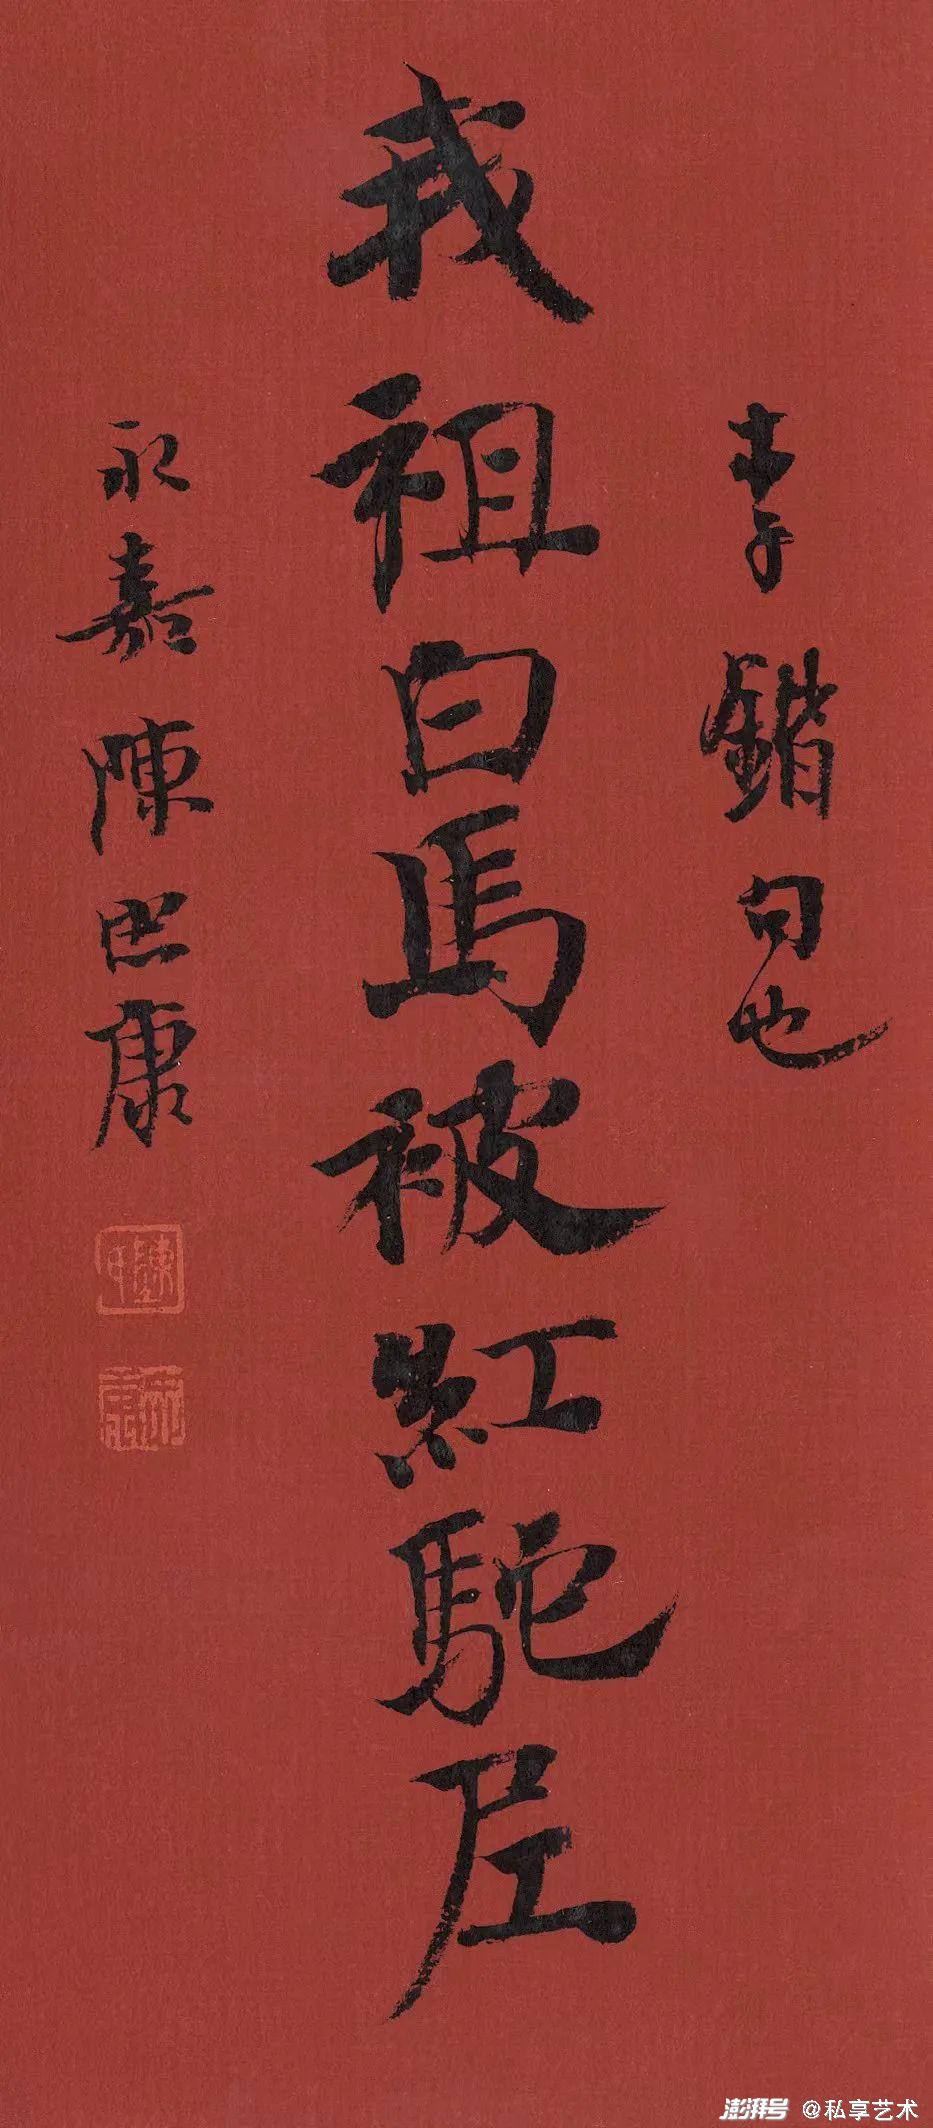 李鍇句也
我祖白馬被紅駝
永嘉陳忠康
澎湃号 @私享艺术